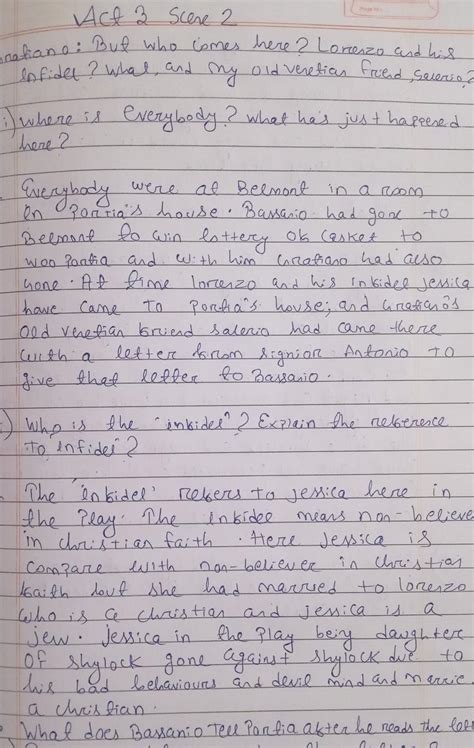 Act 3 Scene 2
ratiano: But who comes here? Lorenzo and his
Infidel? What, and my old venetian friend, Salerio?
i) Where is everybody? What has just happened
here?
Everybody were at Belmont in a room
in Portia's house. Bassanio had gone to
Belmont to win lottery of casket to
woo Portia and with him Gratiano had also
gone. At time lorenzo and his infidel Jessica
have came to Portia's house; and Gratiano's
old venetian friend salerio had came there
with a letter from signior Antonio to
give that letter to Bassanio.
) Who is the "infidel"? Explain the reference
to infidel"?
The 'infidel' refers to Jessica here in
the play. The infidel means non-believe
in christian faith. Here Jessica is
compare with non-believer in christian
faith but she had married to lorenzo
who is a christian and jessica is a
jew. Jessica in the play being daughter
of shylock gone against shylock due to
his bad behaviours and devil mind and marrie
a christian.
What does Bassanio tell Portia after he reads the lett